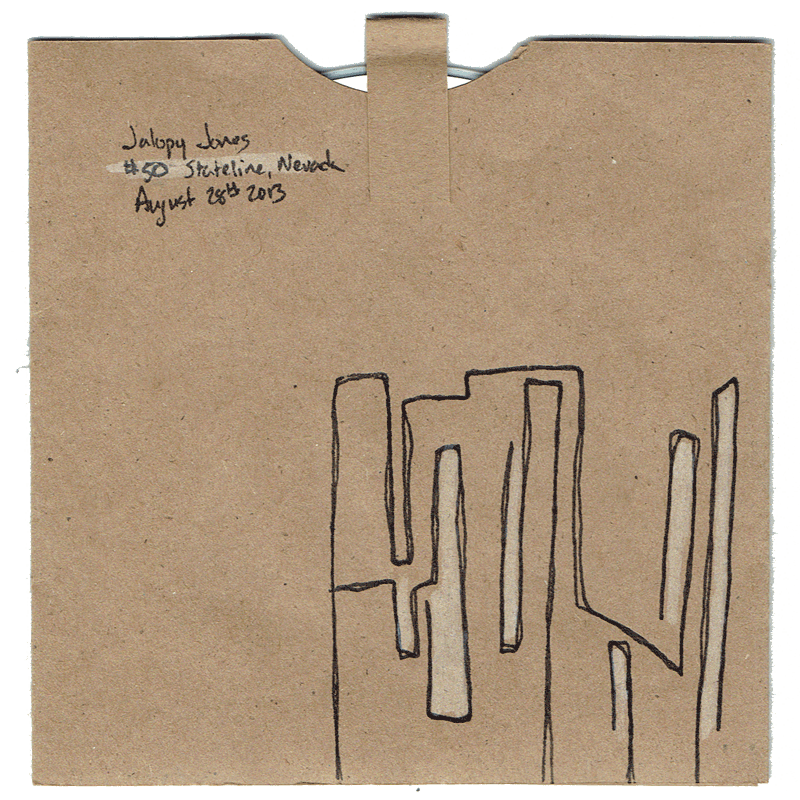 Jalopy Jones
#50 Stateline, Nevada
August 28th 2013